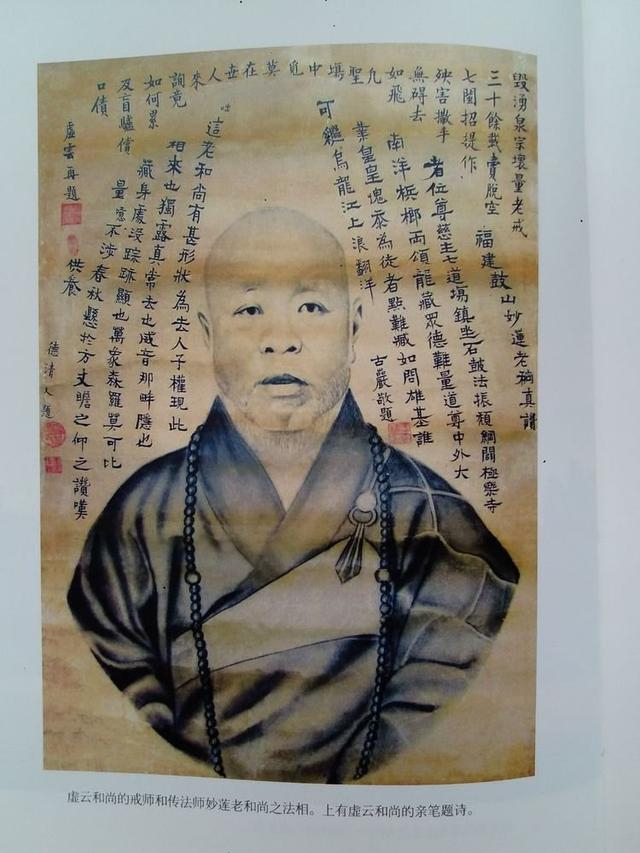 毀湧泉宗壞量老戒
三十餘載賣脫空
七閩招提作
殃害撒手
無碍去
如飛
凡聖壙中覓莫在世人來
詢竟
如何累
及盲驢債
口債
虛雲再題
福建鼓山妙蓮老和尚真讚
者位尊慈主七道場鎮坐石鼓法振頹綱開極樂寺
南洋檳榔兩頌龍藏眾德難量道尊中外大
業皇皇愧忝為徒者點難藏如問雄基誰
可繼烏龍江上浪翻洋
古巖敬題
咄
這老和尚有甚形狀為去人子權現此
相來也獨露真常去也威音那畔隱也
藏身處沒踪跡顯也萬象森羅莫可比
量意不涉春秋懸於方丈瞻之仰之讚嘆
供養
德清又題
虚云和尚的戒师和传法师妙莲老和尚之法相。上有虚云和尚的亲笔题诗。